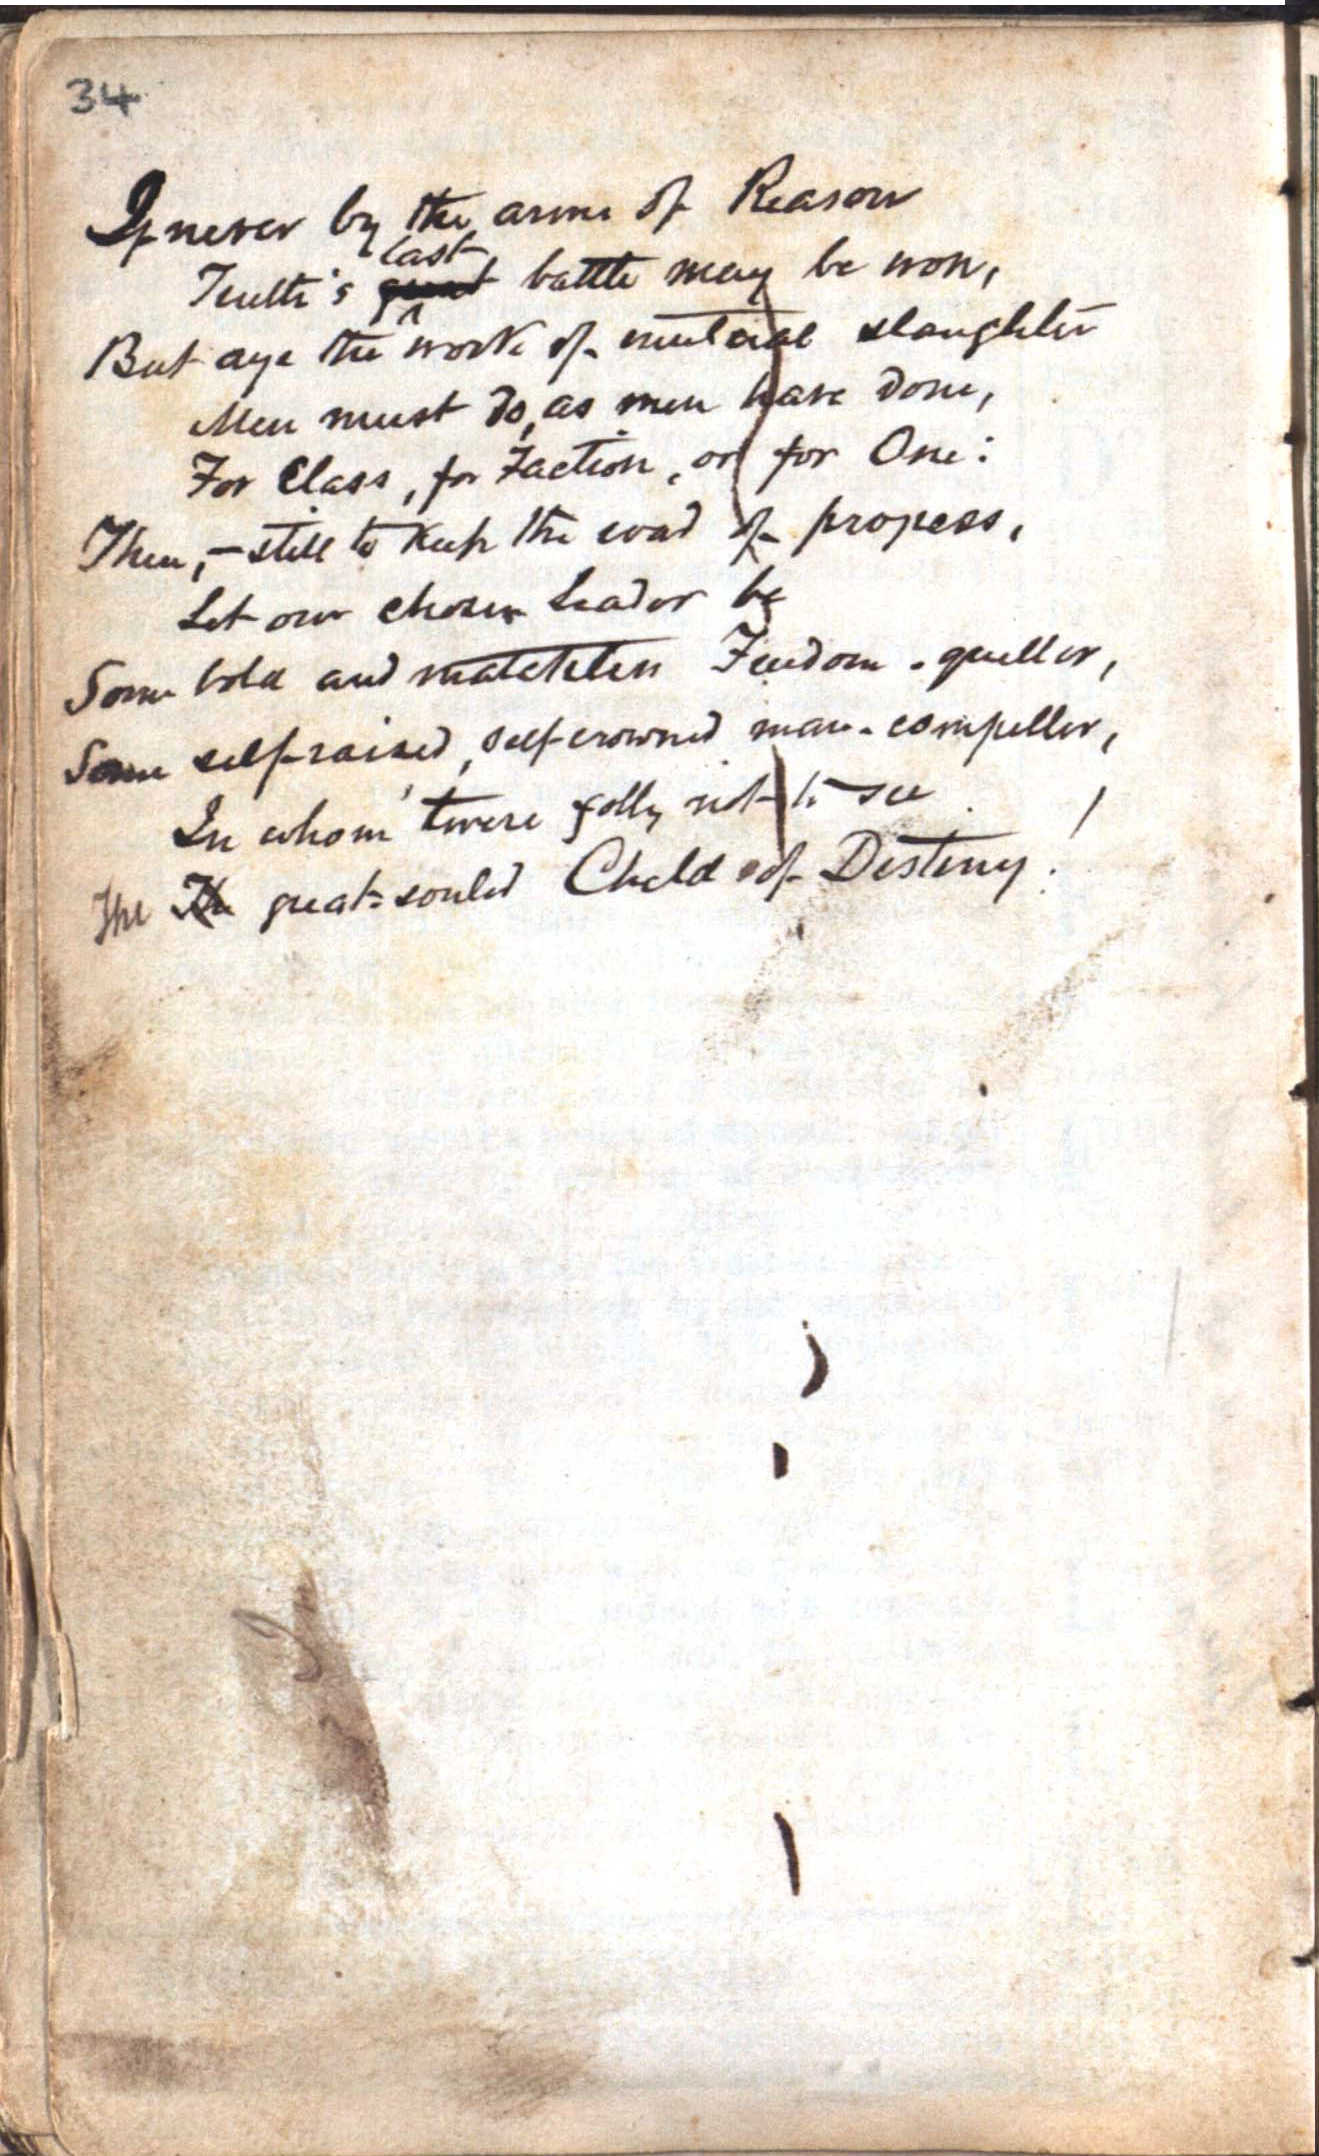 34
If never by the arms of Reason
last
Truth's great battle may be won,
But aye the work of mutual slaughter
Men must do, as men have done,
For Class, for Faction, or for One:
Then, — still to keep the road of progress,
Let our chosen Leader be
Some bold and matchless Freedom-queller,
Some self-raised, self-crowned man-compeller,
In whom 'twere folly not to see
The The great-souled Child of Destiny!